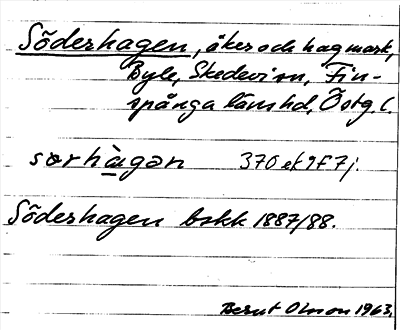 Söderhagen, åker och hagmark,
Byle, Skedevi sn, Fin-
spånga läns hd, Östg. l.
sorhàgan 370 ek 9F7j.
Söderhagen bokk 1887/88.
Bernt Olsson 1963.